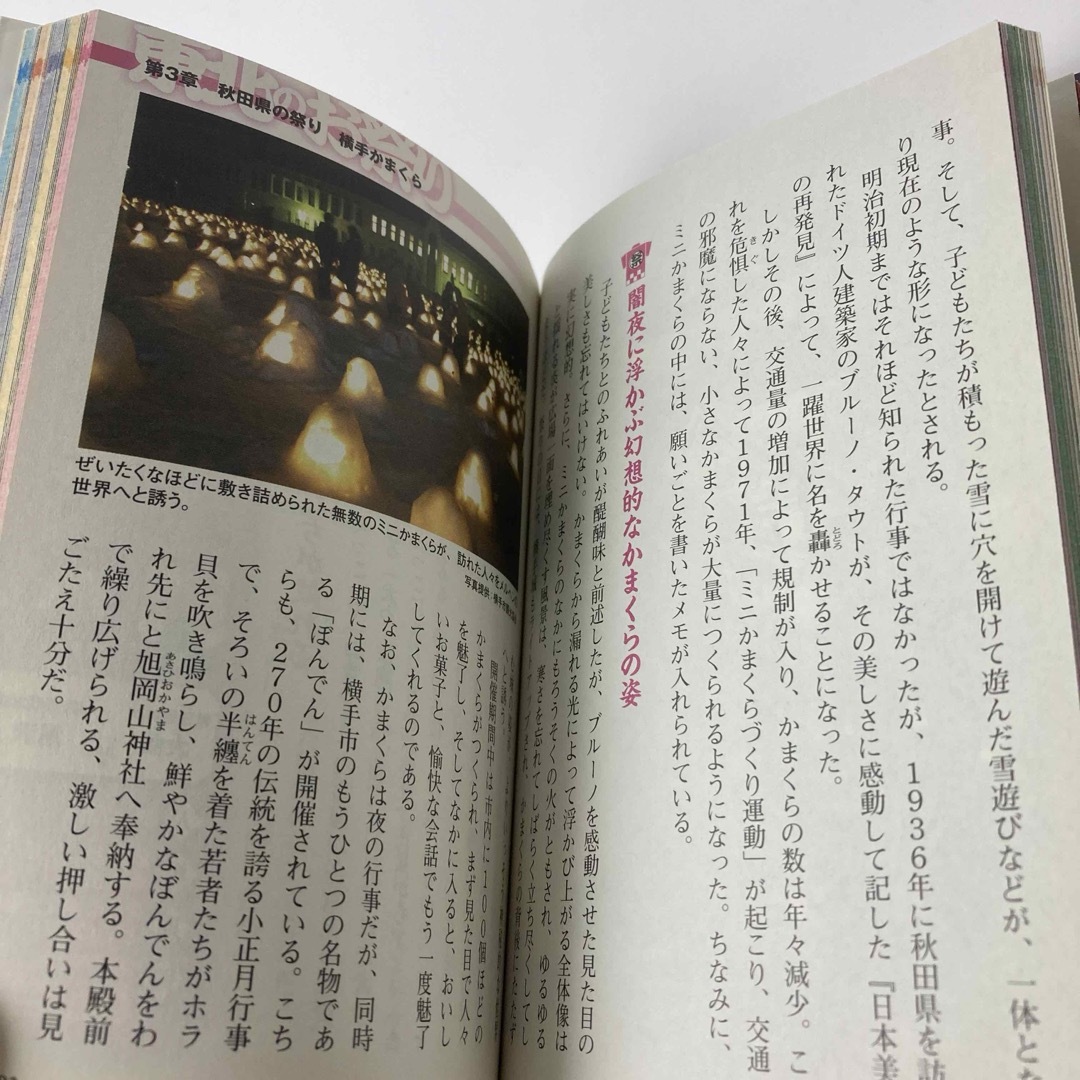 事。そして、子どもたちが積もった雪に穴を開けて遊んだ雪遊びなどが、一体とな
り現在のような形になったとされる。
明治初期まではそれほど知られた行事ではなかったが、1936年に秋田県を訪
れたドイツ人建築家のブルーノ・タウトが、その美しさに感動して記した『日本美
の再発見』によって、一躍世界に名を轟かせることになった。
とどろ
しかしその後、交通量の増加によって規制が入り、かまくらの数は年々減少。こ
れを危惧した人々によって1971年、「ミニかまくらづくり運動」が起こり、交通
きぐ
の邪魔にならない、小さなかまくらが大量につくられるようになった。ちなみに、
ミニかまくらの中には、願いごとを書いたメモが入れられている。
祭 闇夜に浮かぶ幻想的なかまくらの姿
子どもたちとのふれあいが醍醐味と前述したが、ブルーノを感動させた見た目の
美しさも忘れてはいけない。かまくらから漏れる光によって浮かび上がる全体像は
実に幻想的。さらに、ミニかまくらのなかにもろうそくの火がともされ、ゆるゆる
面を埋めつくす風景は、寒さを忘れてしばらく立ち尽くしてし
東北のお祭り
第3章 秋田県の祭り 横手かまくら
ぜいたくなほどに敷き詰められた無数のミニかまくらが、訪れた人々をメルヘンの
世界へと誘う。
写真提供・横手市
開催期間中は市内に100個ほどの
かまくらがつくられ、まず見た目で人々
を魅了し、そしてなかに入ると、おいし
いお菓子と、愉快な会話でもう一度魅了
してくれるのである。
なお、かまくらは夜の行事だが、同時
期には、横手市のもうひとつの名物であ
る「ぼんでん」が開催されている。こち
らも、270年の伝統を誇る小正月行事
で、そろいの半纏を着た若者たちがホラ
はんてん
貝を吹き鳴らし、鮮やかなぼんでんをわ
れ先にと旭岡山神社へ奉納する。本殿前
あさひおかやま
で繰り広げられる、激しい押し合いは見
ごたえ十分だ。